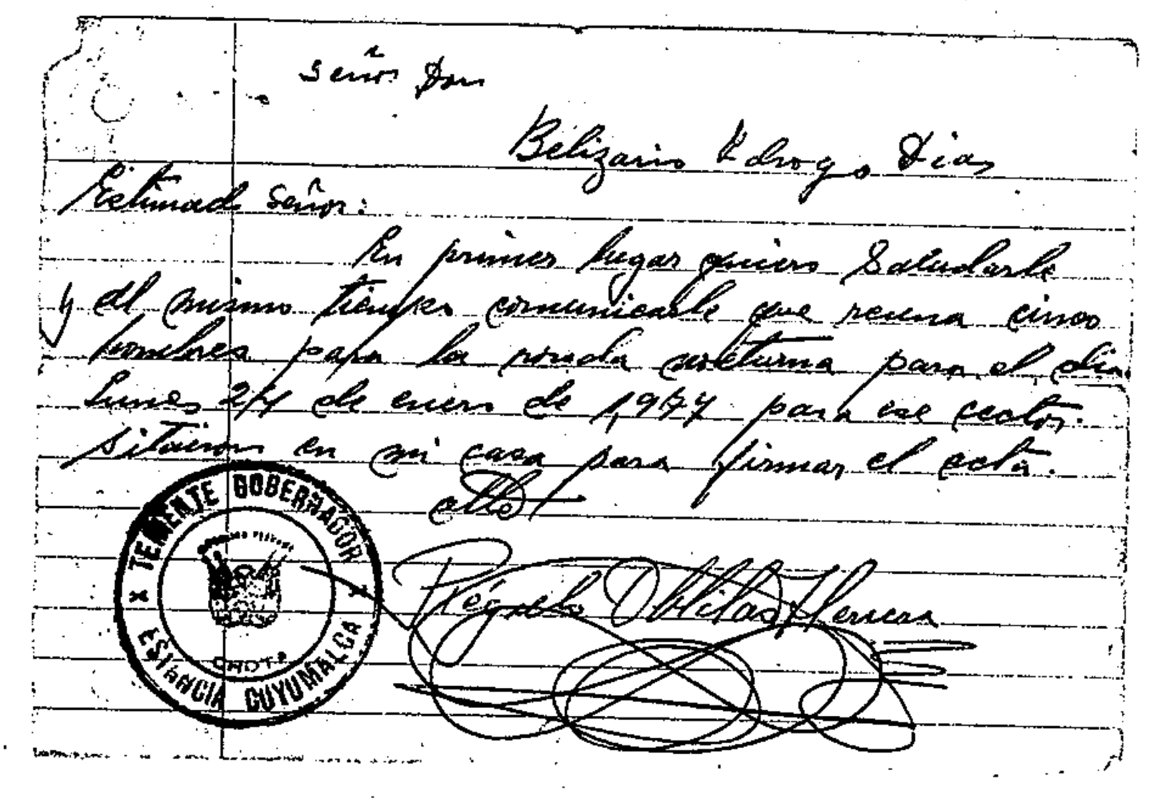 Señor Don
Belizario Idrogo Dias
Estimado Señor:
En primer lugar quiero Saludarle
y al mismo tiempo comunicarle que reuna cinco
hombres para la ronda nocturna para el dia
Lunes 24 de enero de 1,977 para ese cector.
sitacion en mi casa para firmar el acta.
Atte
Régulo Oblitas Herrera
TENIENTE GOBERNADOR
CHOTA
ESTANCIA CUYUMALCA